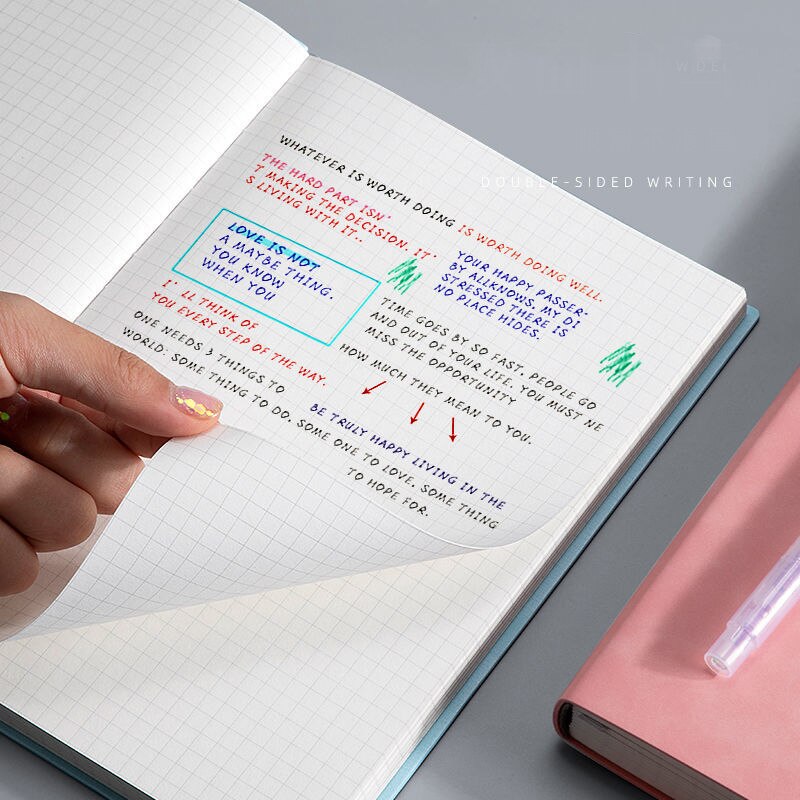 DOUBLE-SIDED WRITING
WHATEVER IS WORTH DOING IS WORTH DOING WELL.
THE HARD PART ISN'
T MAKING THE DECISION. IT'
S LIVING WITH IT..
LOVE IS NOT
A MAYBE THING.
YOU KNOW
WHEN YOU
YOUR HAPPY PASSER-
BY ALLKNOWS, MY DI
STRESSED THERE IS
NO PLACE HIDES.
I' LL THINK OF
YOU EVERY STEP OF THE WAY.
TIME GOES BY SO FAST, PEOPLE GO
AND OUT OF YOUR LIFE. YOU MUST NE
MISS THE OPPORTUNITY
HOW MUCH THEY MEAN TO YOU.
ONE NEEDS 3 THINGS TO
BE TRULY HAPPY LIVING IN THE
WORLD: SOME THING TO DO, SOME ONE TO LOVE, SOME THING
TO HOPE FOR.